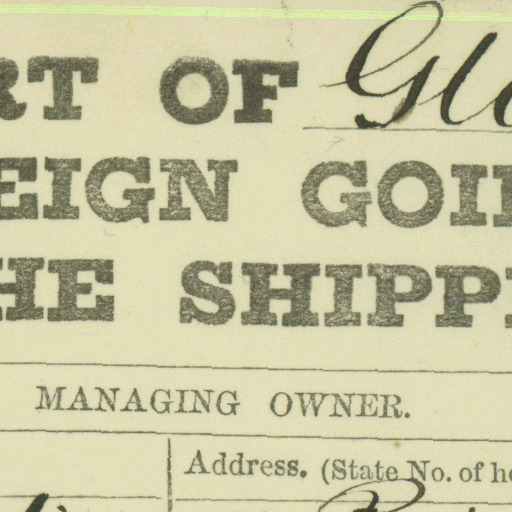 RT OF Gl
EIGN GOI
HE SHIPP
MANAGING OWNER.
Address. (State No. of ho